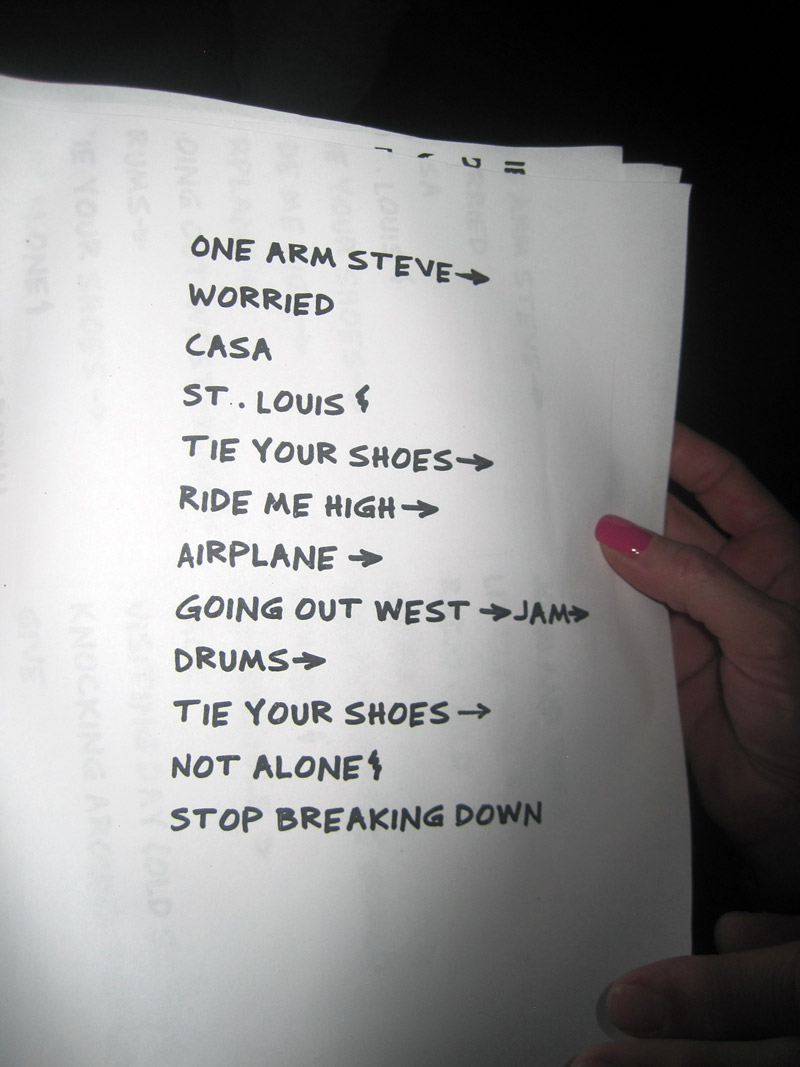 ONE ARM STEVE→
WORRIED
CASA
ST.. LOUIS &
TIE YOUR SHOES→
RIDE ME HIGH→
AIRPLANE →
GOING OUT WEST →JAM→
DRUMS→
TIE YOUR SHOES →
NOT ALONE &
STOP BREAKING DOWN